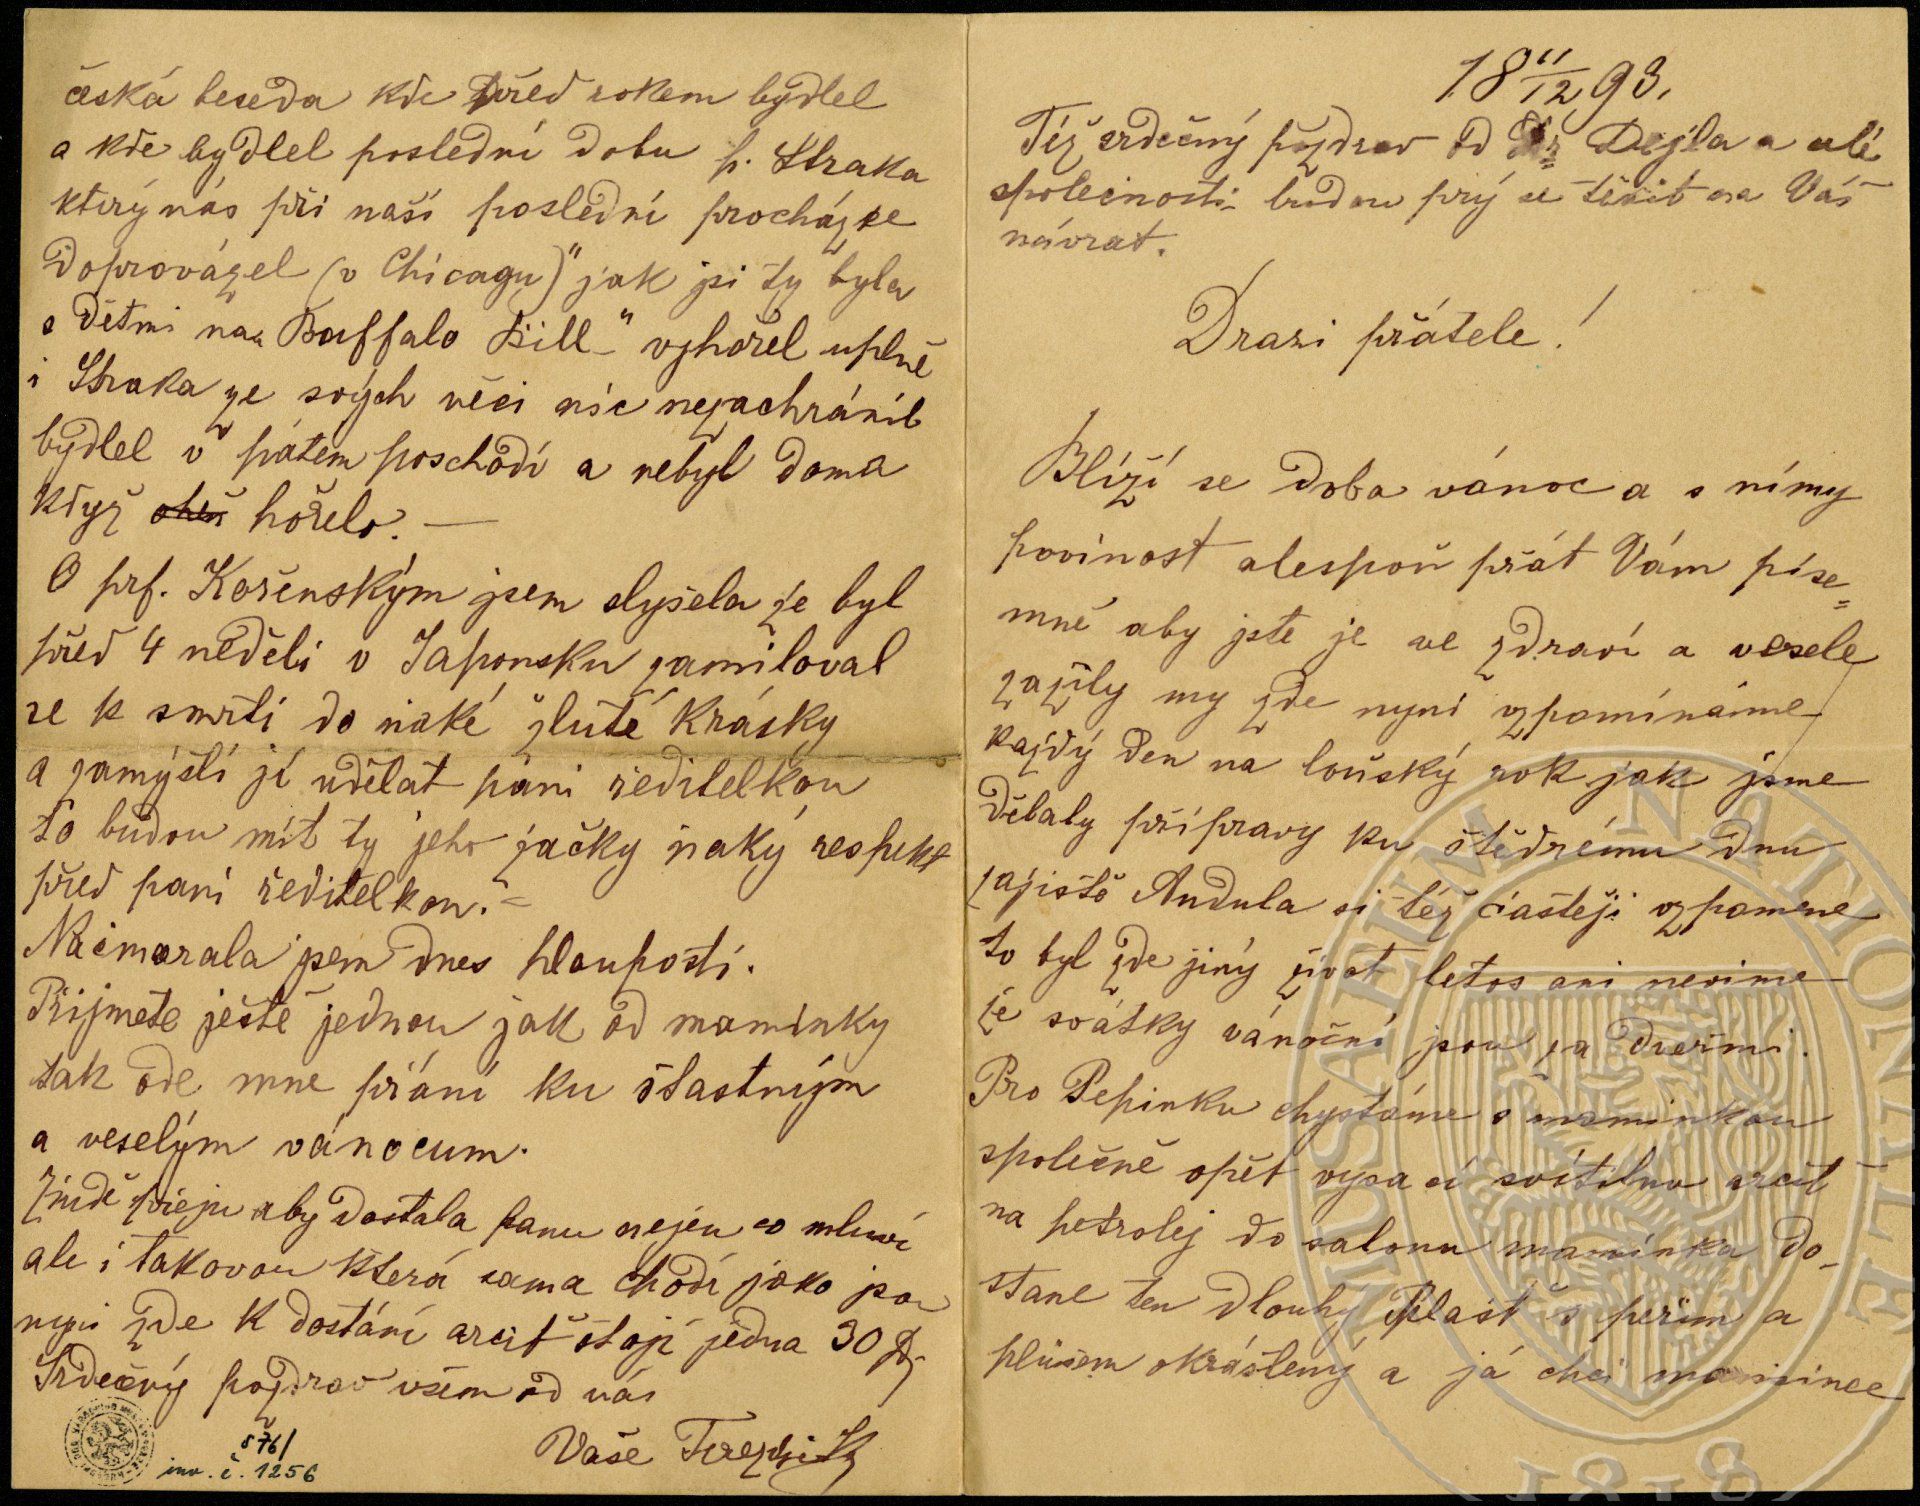 18 11/12 93.
Též srdečný pozdrav od Dr Dejla a celé
společnosti budou prý se těšit na Váš
návrat.
Drazi přátele!
Blíží se doba vánoc a s nímy
povinost alespoň přát Vám píse=
mně aby jste je ve zdraví a vesele
zažily my zde nyní vzpomínáme
každý den na loňský rok jak jsme
dělaly přípravy ku štědrému dnu
zajistě Andula si též častěji vzpomene
to byl zde jiný život letos ani nevime
že svátky vánoční jsou za dveřmi.
Pro Pepinku chystáme s maminkou
společně opět vysací svítilnu arciť
na petrolej do salonu maminka do-
stane ten dlouhý plášť s peřím a
plüšem okrášlený a já chci mamince
česká beseda kde před rokem bydlel
a kde bydlel poslední dobu p. Straka
který nás při naší poslední procházce
doprovázel (v Chicagu)" jak jsi ty byla
s dětmi na "Buffalo Bill" vyhořel uplně
i Straka ze svých věci nic nezachránil
bydlel v pátem poschodí a nebyl doma
když oheň hořelo. —
O prf. Kořenským jsem slyšela že byl
před 4 neděli v Japonsku zamiloval
se k smrti do ňaké žluté krásky
a zamýšlí jí udělat páni ředitelkou
to budou mít ty jeho začky ňaký respekt
před paní ředitelkou. —
Načmarala jsem dnes hlouposti.
Přijmete ještě jednou jak od maminky
tak ode mne přání ku šťastným
a veselým vánocum.
přeju aby dostala panu nejen co mluví
ale i takovou která sama chodí jako jsou
nyní zde k dostání arciť stojí jedna 30 $
Srdečný pozdrav všem od nás
Vaše
876/
inv. č. 1256
MUSAEUM NATIONALE
1818